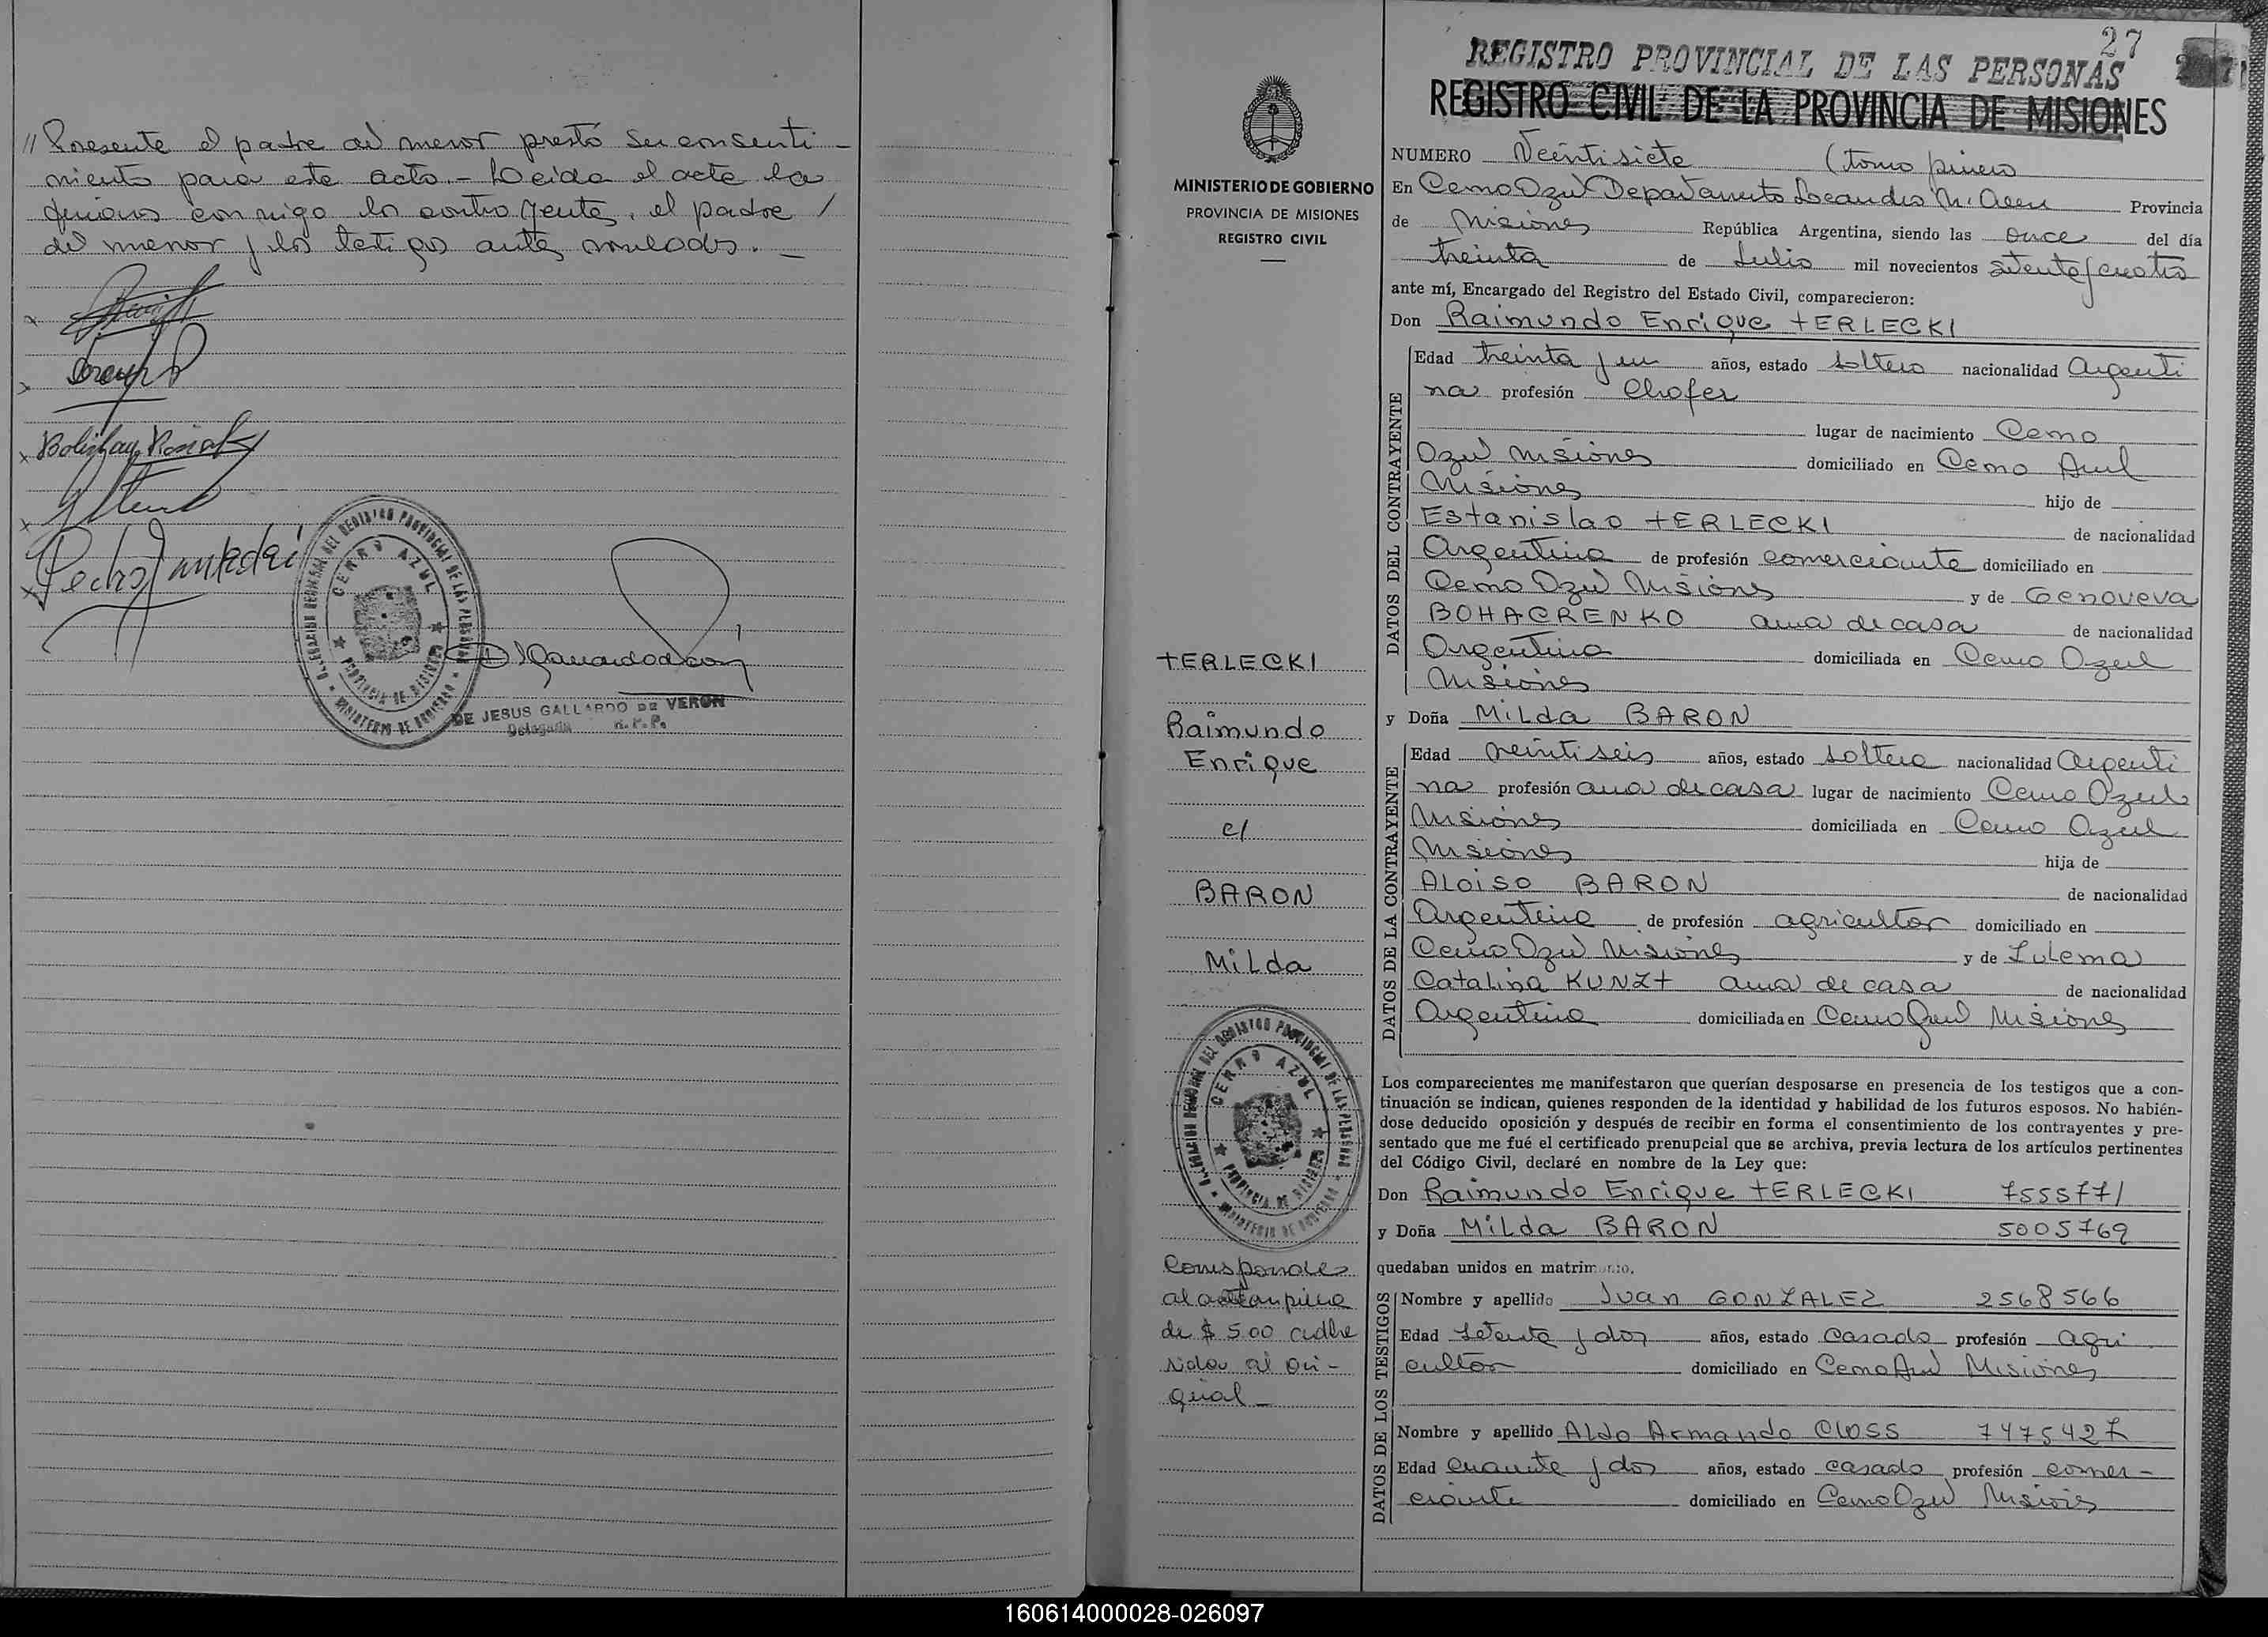 // Presente el padre del menor prestó su consenti-
miento para este acto.- Leida el acta la
firmaron conmigo los contrayentes, el padre /
del menor y los testigos ante nombrados.-
Pedro
DELEGACION REGIONAL DEL REGISTRO PROVINCIAL DE LAS PERSONAS
CERRO AZUL
PROVINCIA DE MISIONES
MINISTERIO DE GOBIERNO
DE JESUS GALLARDO DE VERON
Delegada R.P.P.
27
REGISTRO PROVINCIAL DE LAS PERSONAS
REGISTRO CIVIL DE LA PROVINCIA DE MISIONES
MINISTERIO DE GOBIERNO
PROVINCIA DE MISIONES
REGISTRO CIVIL
TERLECKI
Raimundo
Enrique
c/
BARON
Milda
DELEGACION REGIONAL DEL REGISTRO PROVINCIAL DE LAS PERSONAS
CERRO AZUL
PROVINCIA DE MISIONES
MINISTERIO DE GOBIERNO
Corresponde
al
de $ 5.00 adhe
rida al ori-
ginal-
NUMERO Veintisiete (tomo primero
En Cerro Azul Departamento Leandro N. Alem Provincia
de Misiones República Argentina, siendo las once del día
treinta de Julio mil novecientos setenta y cuatro
ante mí, Encargado del Registro del Estado Civil, comparecieron:
Don Raimundo Enrique TERLECKI
DATOS DEL CONTRAYENTE
Edad treinta y un años, estado soltero nacionalidad Argenti
na profesión Chofer
lugar de nacimiento Cerro
Azul Misiones domiciliado en Cerro Azul
Misiones hijo de
Estanislao TERLECKI de nacionalidad
Argentina de profesión comerciante domiciliado en
Cerro Azul Misiones y de Genoveva
BOHACRENKO ama de casa de nacionalidad
Argentina domiciliada en Cerro Azul
Misiones
y Doña Milda BARON
DATOS DE LA CONTRAYENTE
Edad veintiseis años, estado soltera nacionalidad Argenti
na profesión ama de casa lugar de nacimiento Cerro Azul
Misiones domiciliada en Cerro Azul
Misiones hija de
Aloiso BARON de nacionalidad
Argentina de profesión agricultor domiciliado en
Cerro Azul Misiones y de Zulema
Catalina KUNZT ama de casa de nacionalidad
Argentina domiciliada en Cerro Azul Misiones
Los comparecientes me manifestaron que querían desposarse en presencia de los testigos que a con-
tinuación se indican, quienes responden de la identidad y habilidad de los futuros esposos. No habién-
dose deducido oposición y después de recibir en forma el consentimiento de los contrayentes y pre-
sentado que me fué el certificado prenupcial que se archiva, previa lectura de los artículos pertinentes
del Código Civil, declaré en nombre de la Ley que:
Don Raimundo Enrique TERLECKI 7555771
y Doña Milda BARON 5005769
quedaban unidos en matrimonio.
DATOS DE LOS TESTIGOS
Nombre y apellido Juan GONZALEZ 2568566
Edad setenta y dos años, estado casado profesión agri
cultor domiciliado en Cerro Azul Misiones
Nombre y apellido Aldo Armando CLOSS 7475427
Edad cuarenta y dos años, estado casado profesión comer-
ciante domiciliado en Cerro Azul Misiones
160614000028-026097